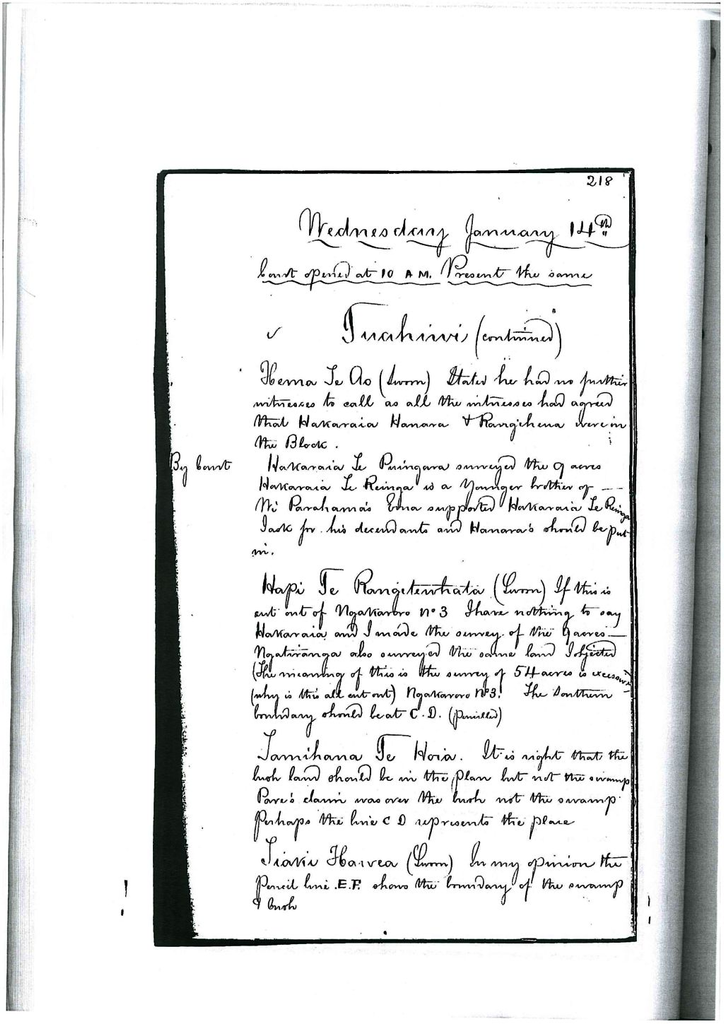 218
Wednesday January 14th
Court opened at 10 AM. Present the same
Tuahiwi (continued)
Hema Te Ao (Sworn) States he had no further
witnesses to call as all the witnesses had agreed
that Hakaraia Hanara & Rangihena were in
the Block.
By Court Hakaraia Te Puingara surveyed the 9 acres
Hakaraia Te Reinga is a Younger brother of —
Wi Parahama's Edna supported Hakaraia Te Reinga
I ask for his decendants and Hanara's should be put
in.
Hapi Te Rangitewhata (Sworn) If this is
cut out of Ngakaroro No 3 I have nothing to say
Hakaraia and I made the survey of the 9 acres —
Ngatiranga also surveyed the same land I objected
(The meaning of this is the survey of 54 acres is
(why is this all cut out) Ngakaroro No 3. The Southern
boundary should be at C.D. (pencilled)
Tamihana Te Hoia. It is right that the
bush land should be in the plan but not the swamp
Pare's claim was over the bush not the swamp
Perhaps the line C D represents the place
Tiaki Hawea (Sworn) In my opinion the
Pencil line E.F. shows the boundary of the swamp
& bush